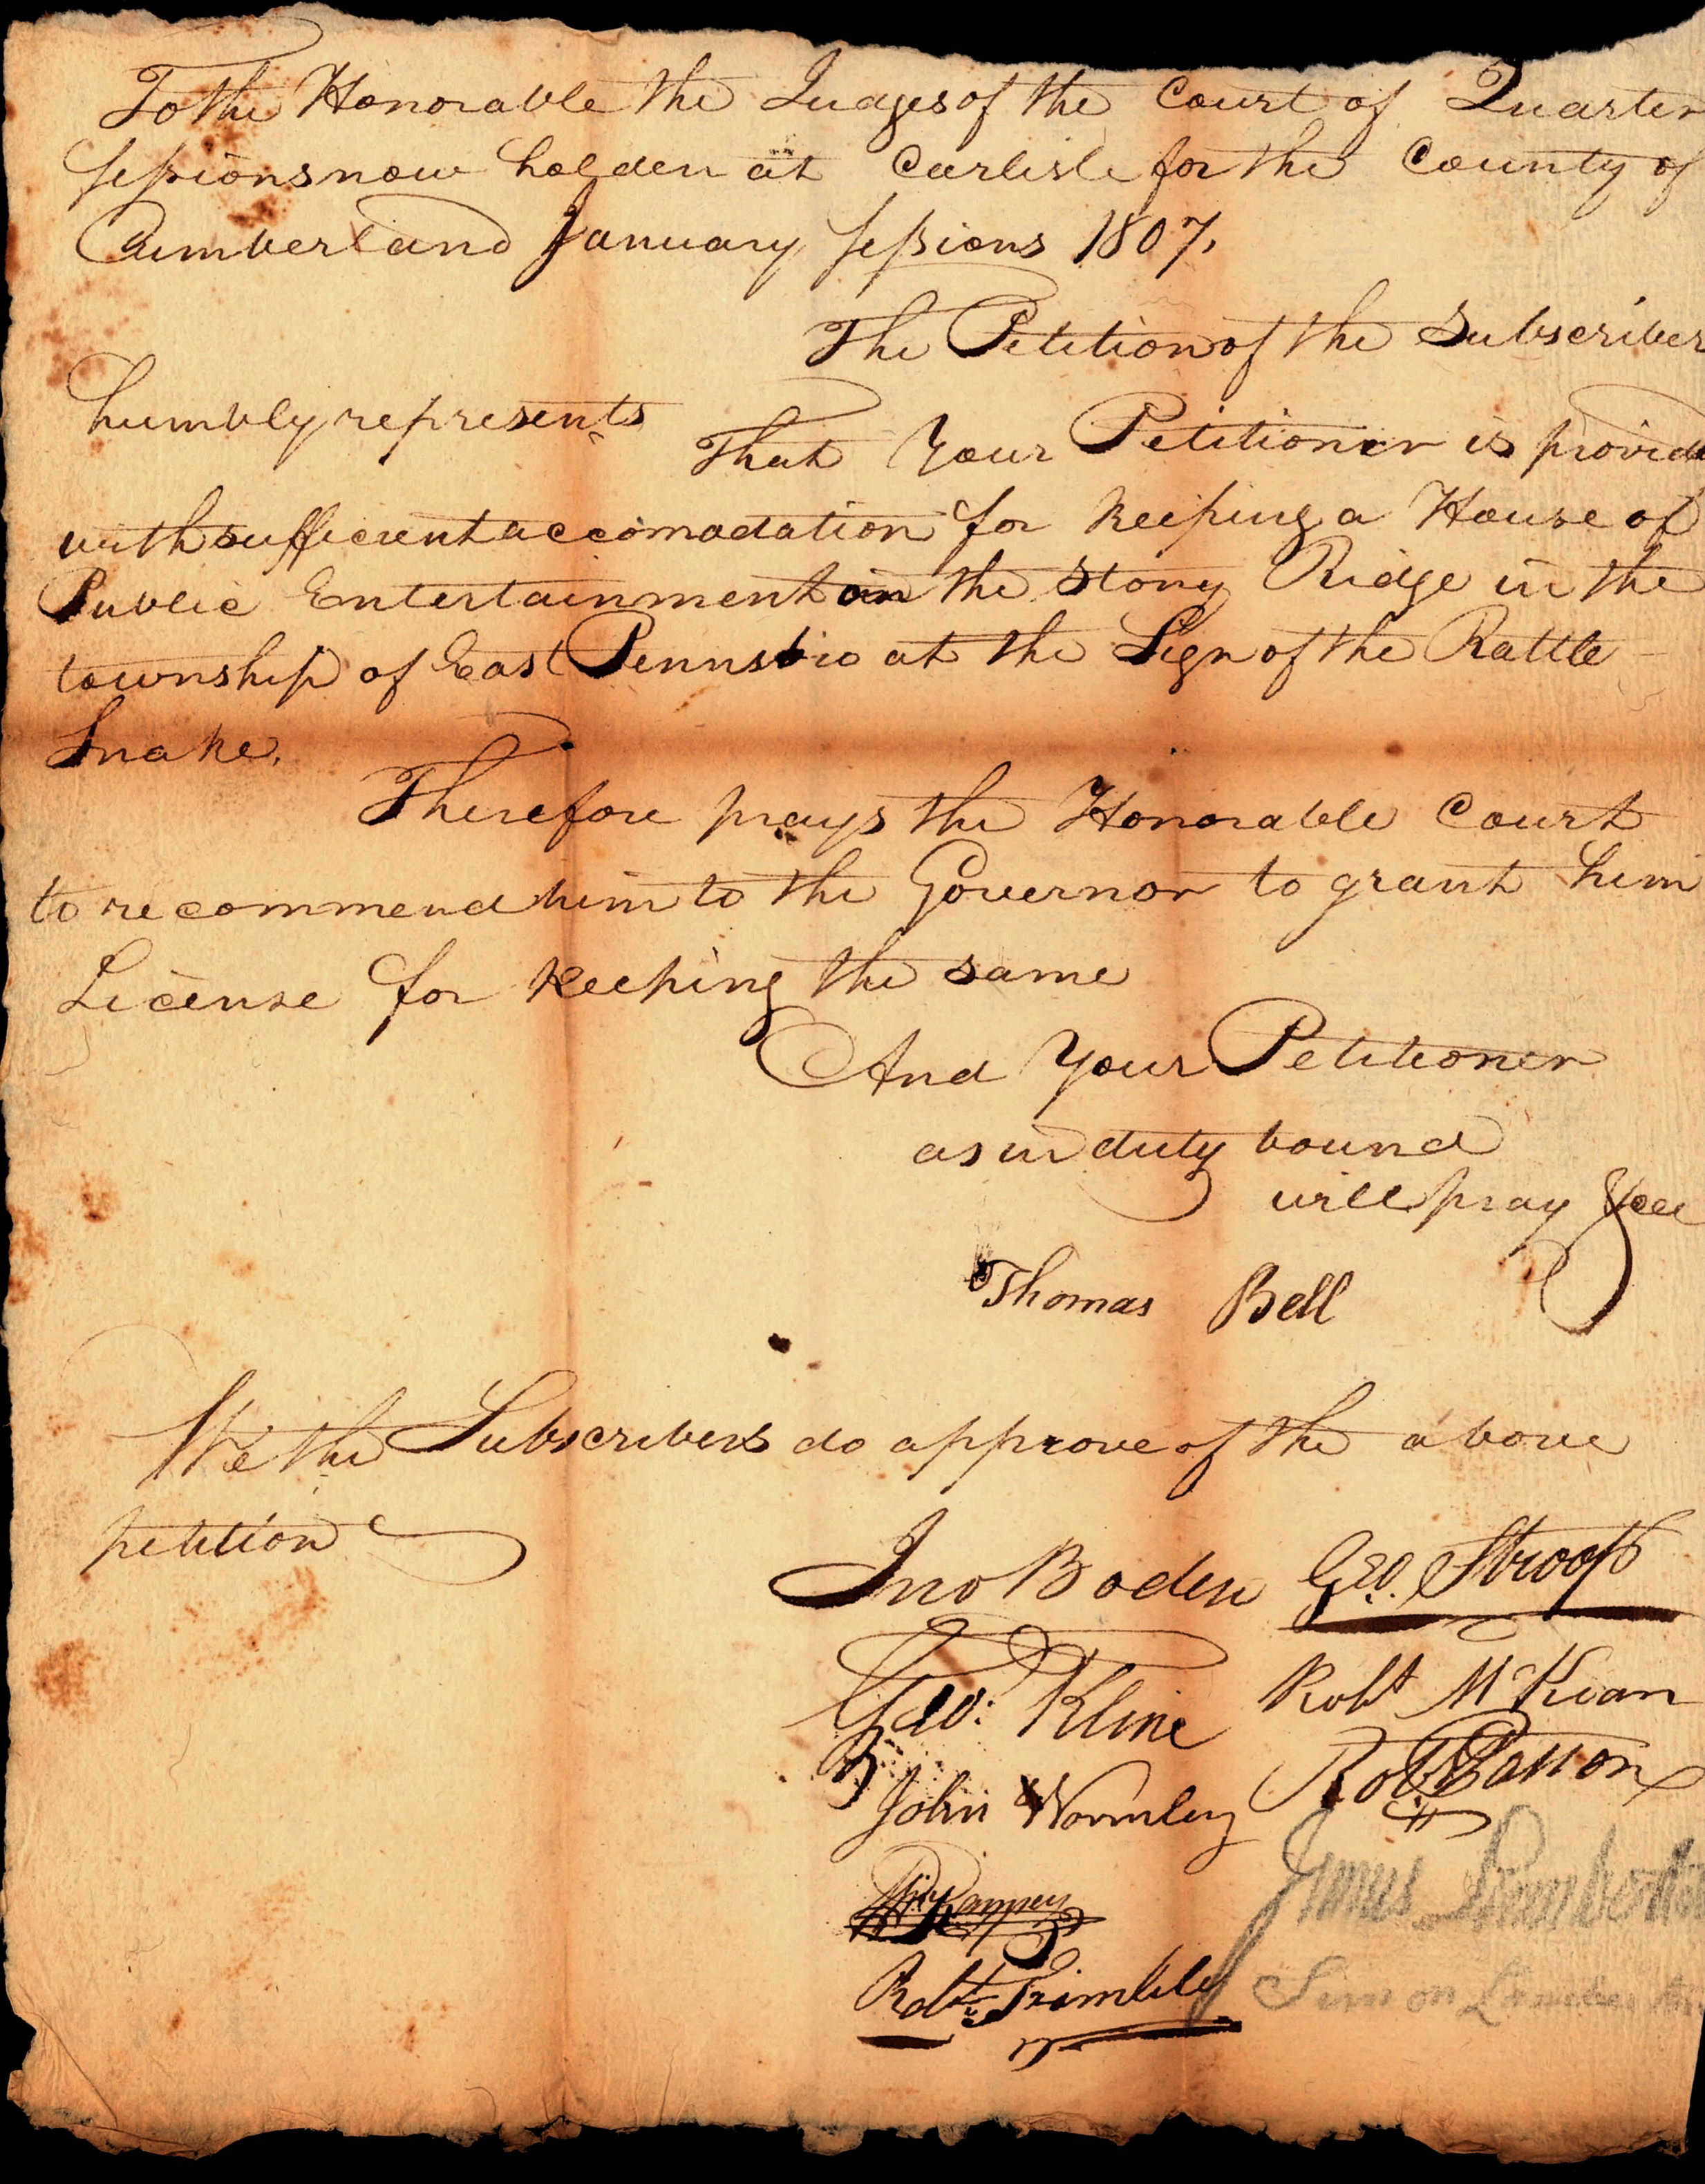 To the Honorable the Judges of the Court of Quarter
Sessions now holden at Carlisle for the County of
Cumberland January Sessions 1807.
The Petition of the Subscriber
humbly represents
That Your Petitioner is provid
with sufficient accomodation for keeping a House of
Public Entertainment on the Stony Ridge in the
township of East Pennsbro at the Sign of the Rattle
Snake.
Therefore prays the Honorable Court
to recommend him to the Governor to grant him
License for keeping the same
And Your Petitioner
as in duty bound
will pray &c
Thomas Bell
We the Subscribers do approve of the above
petition
Jno Boden Geo. Stroop
Geo: Kline Robt McKean
John Wormley Robt Patton
Ramsey James Lamberton
Robt Trimble Simon